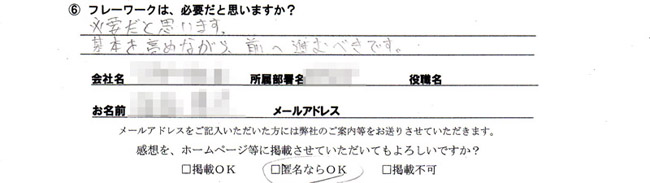 ⑥ フレーワークは、必要だと思いますか?
必要だと思います。
基本を高めながら、前へ進むべきです。
会社名 所属部署名 役職名
お名前 メールアドレス
メールアドレスをご記入いただいた方には弊社のご案内等をお送りさせていただきます。
感想を、ホームページ等に掲載させていただいてもよろしいですか?
□掲載OK □匿名ならOK □掲載不可